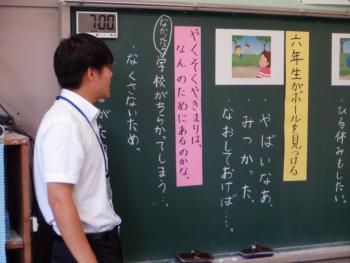 7:00
ひる休みもしたい。
六年生がボールを見つける
・やばいなあ。
みつかった。
なおしておけば…。
やくそくやきまりは、
なんのためにあるのかな。
なかったら
・学校がちらかってしまう…
・なくさないため。